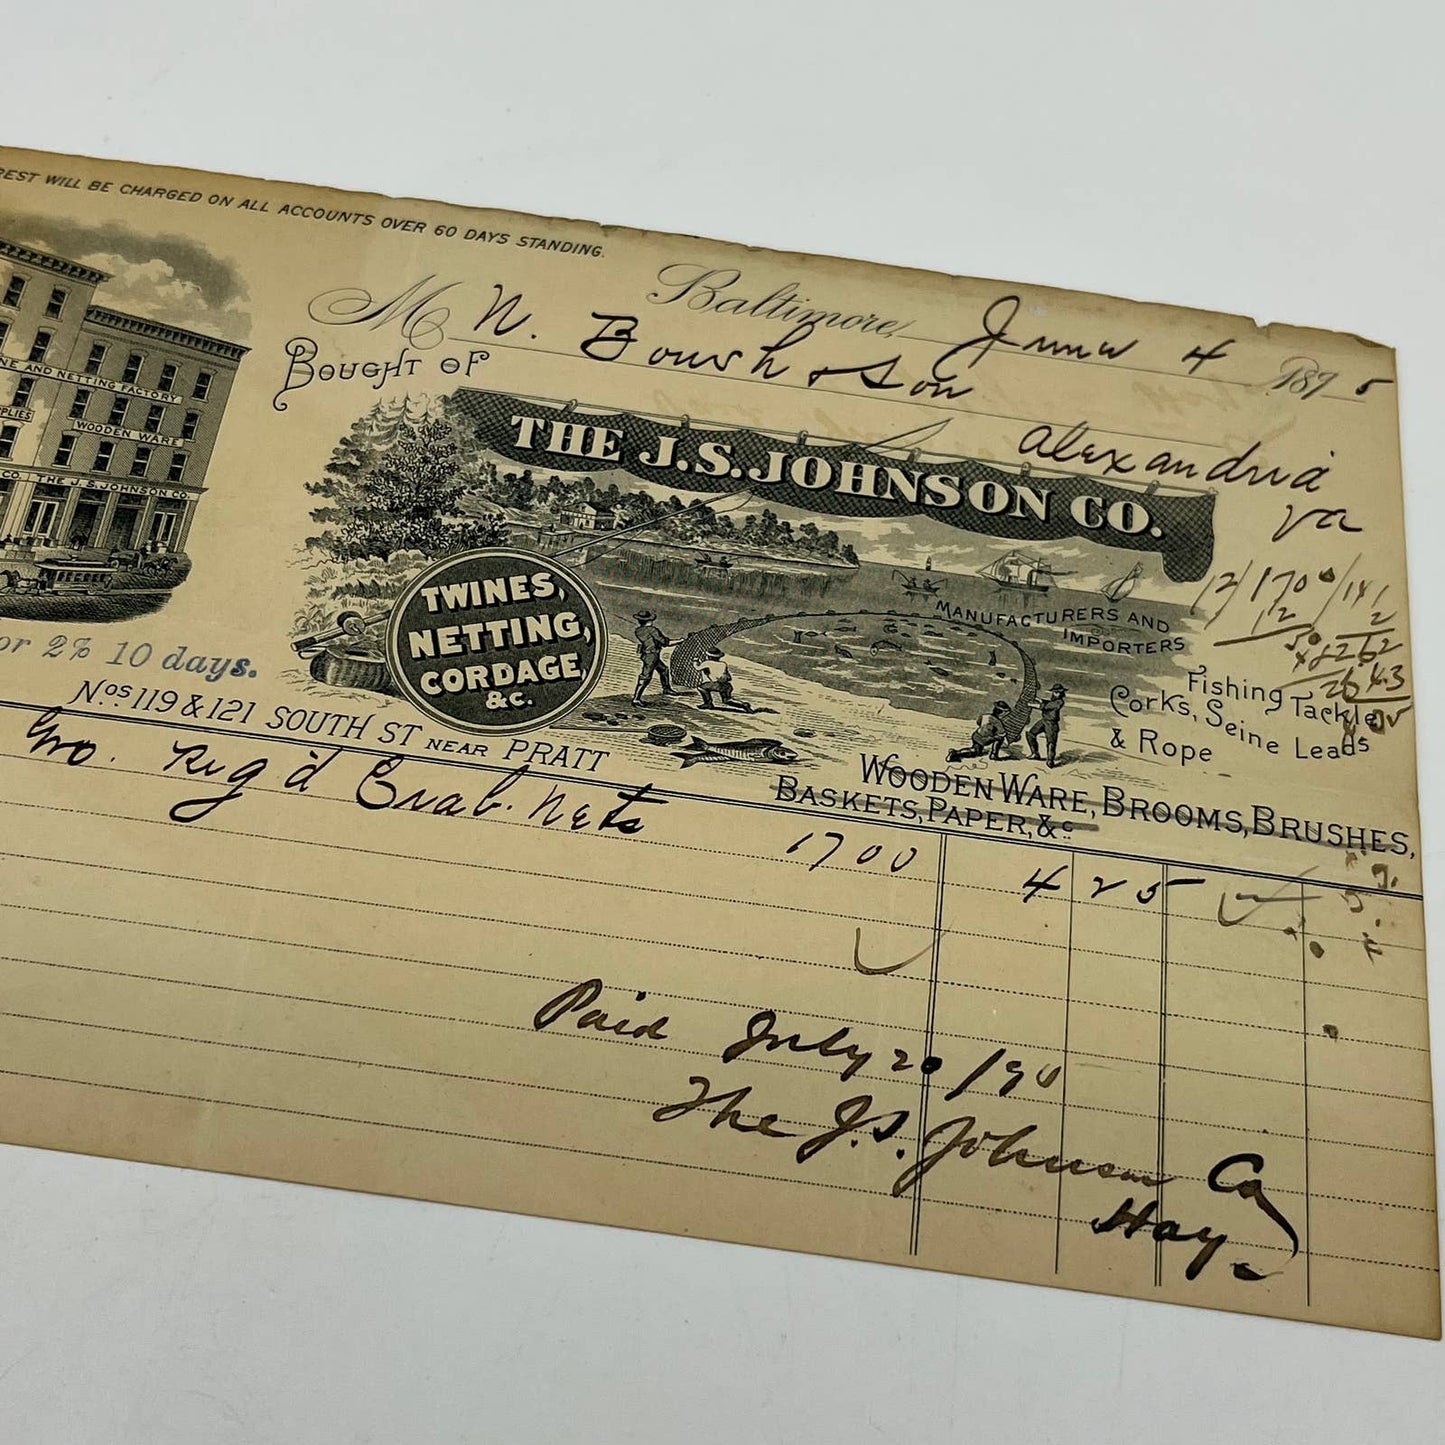 REST WILL BE CHARGED ON ALL ACCOUNTS OVER 60 DAYS STANDING.
Baltimore, June 4 1895
M N. Boush & Son
Alexandria
Va
Bought of
THE J.S. JOHNSON CO.
MANUFACTURERS AND
IMPORTERS
TWINES,
NETTING,
CORDAGE,
&C.
Fishing Tackle
Corks, Seine Leads
& Rope
NE AND NETTING FACTORY
PPLIES
WOODEN WARE
CO. THE J.S. JOHNSON CO.
or 2% 10 days.
Nos 119 & 121 SOUTH ST NEAR PRATT
WOODEN WARE, BROOMS, BRUSHES,
BASKETS, PAPER, &c
12/1700/141
12
Gro. Rig'd Crab. Nets 1700 4 25
Paid July 20/95
The J.S. Johnson Co
Hay